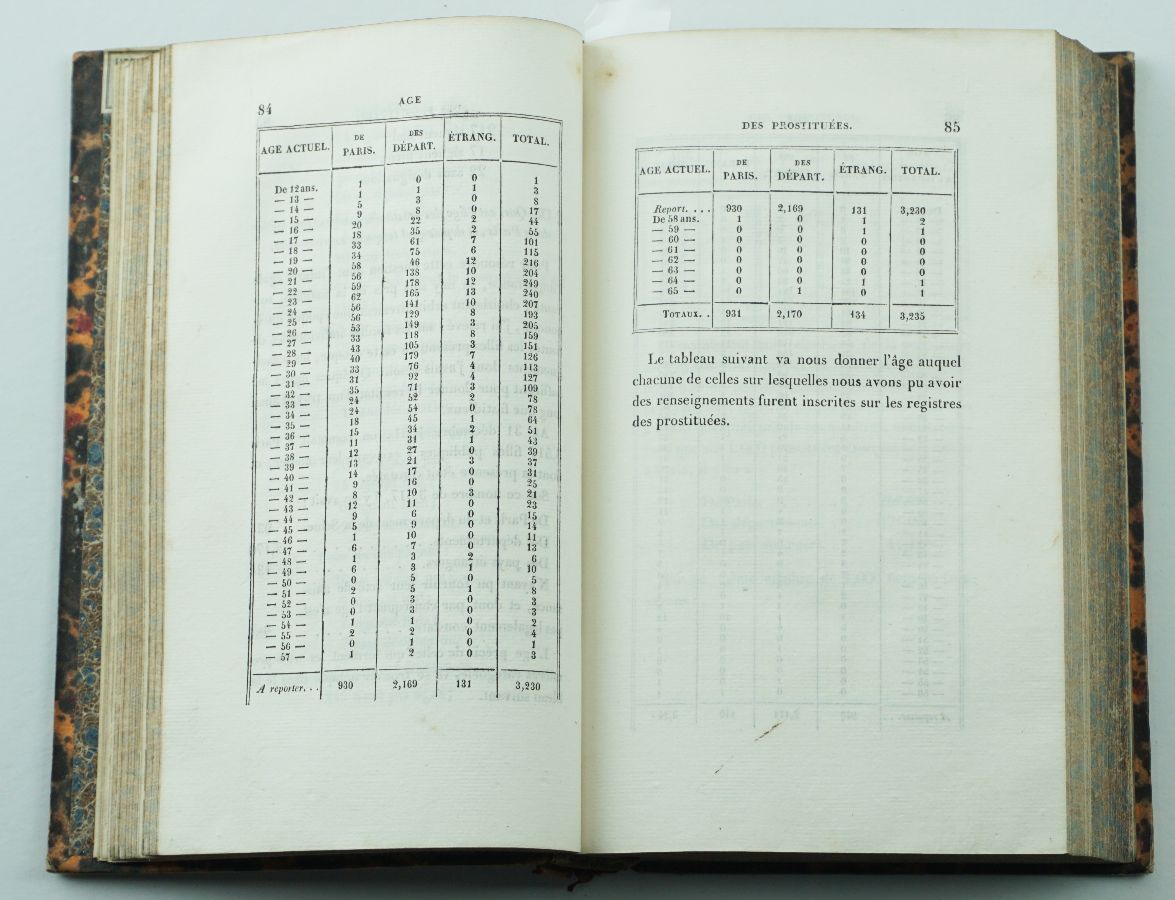 84
AGE
AGE ACTUEL. DE PARIS. DES DÉPART. ÉTRANG. TOTAL.
De 12 ans. 1 0 0 1
— 13 — 1 1 1 3
— 14 — 5 3 0 8
— 15 — 9 8 0 17
— 16 — 20 22 2 44
— 17 — 18 35 2 55
— 18 — 33 61 7 101
— 19 — 34 75 6 115
— 20 — 58 46 12 216
— 21 — 56 138 10 204
— 22 — 59 178 12 249
— 23 — 62 165 13 240
— 24 — 56 141 10 207
— 25 — 56 129 8 193
— 26 — 53 149 3 205
— 27 — 33 118 8 159
— 28 — 43 105 3 151
— 29 — 40 179 7 126
— 30 — 33 76 4 113
— 31 — 31 92 4 127
— 32 — 35 71 3 109
— 33 — 24 52 2 78
— 34 — 24 54 0 78
— 35 — 18 45 1 64
— 36 — 15 34 2 51
— 37 — 11 31 1 43
— 38 — 12 27 0 39
— 39 — 13 21 3 37
— 40 — 14 17 0 31
— 41 — 9 16 0 25
— 42 — 8 10 3 21
— 43 — 12 11 0 23
— 44 — 9 6 0 15
— 45 — 5 9 0 14
— 46 — 1 10 0 11
— 47 — 6 7 0 13
— 48 — 1 3 2 6
— 49 — 6 3 1 10
— 50 — 0 5 0 5
— 51 — 2 5 1 8
— 52 — 0 3 0 3
— 53 — 0 3 0 3
— 54 — 1 1 0 2
— 55 — 2 2 0 4
— 56 — 0 1 0 1
— 57 — 1 2 0 3
A reporter. . . 930 2,169 131 3,230
DES PROSTITUÉES.
85
AGE ACTUEL. DE PARIS. DES DÉPART. ÉTRANG. TOTAL.
Report. . . . 930 2,169 131 3,230
De 58 ans. 1 0 1 2
— 59 — 0 0 1 1
— 60 — 0 0 0 0
— 61 — 0 0 0 0
— 62 — 0 0 0 0
— 63 — 0 0 0 0
— 64 — 0 0 1 1
— 65 — 0 1 0 1
TOTAUX. . 931 2,170 134 3,235
Le tableau suivant va nous donner l'âge auquel
chacune de celles sur lesquelles nous avons pu avoir
des renseignements furent inscrites sur les registres
des prostituées.